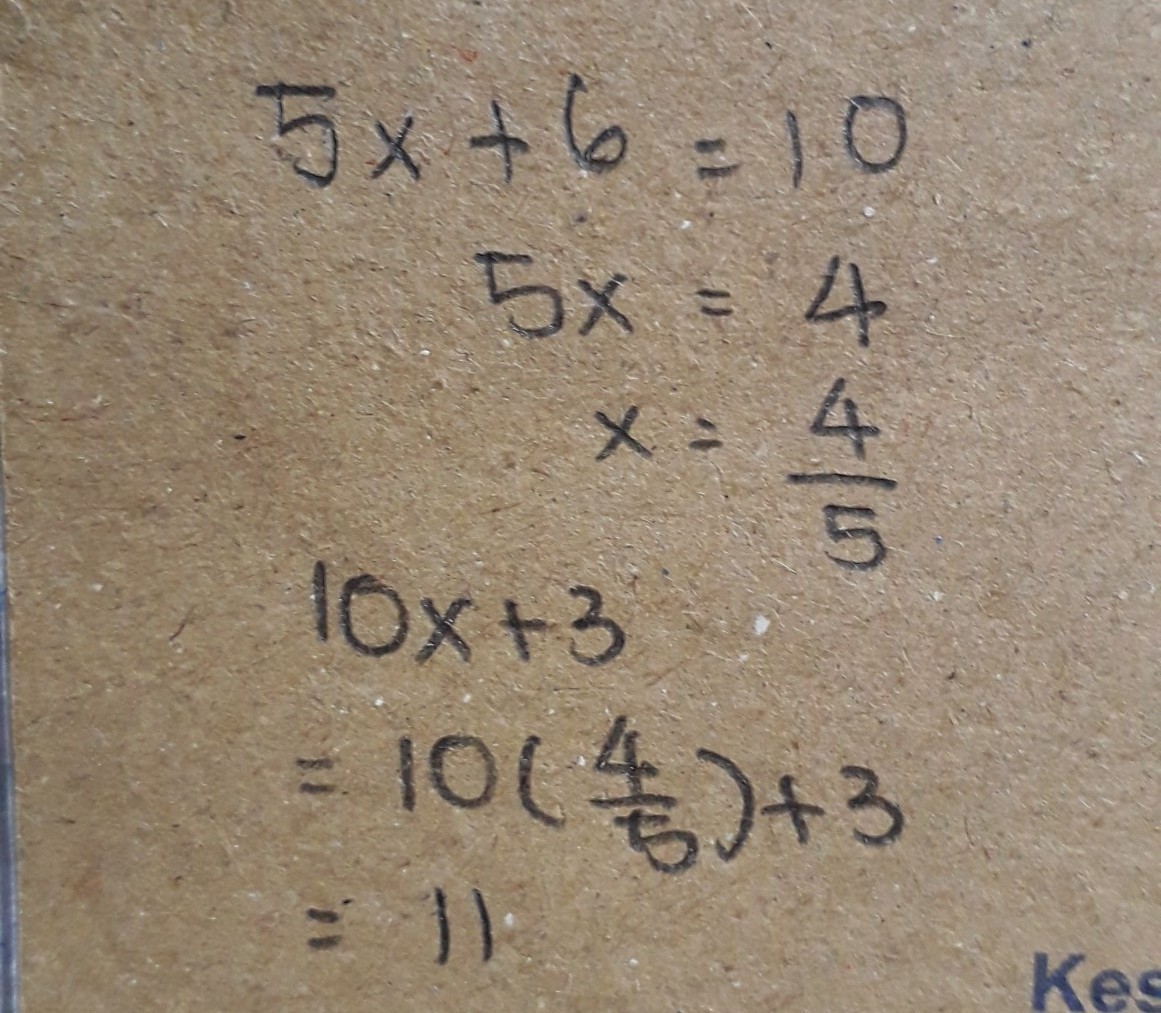 5x + 6 = 10
5x = 4
x = 4/5
10x + 3
= 10(4/5) + 3
= 11
Kes